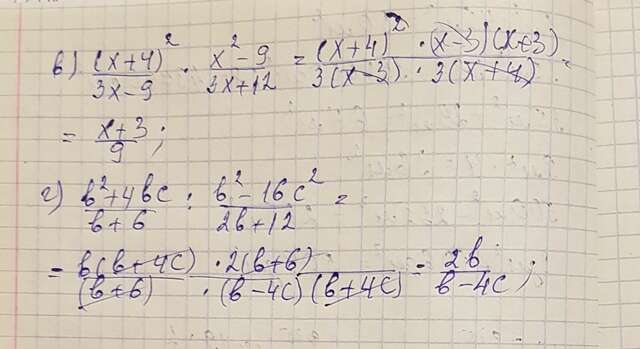 в) (x+4)²/(3x-9) · (x²-9)/(3x+12) = ((x+4)² · (x-3)(x+3))/(3(x-3) · 3(x+4)) =
= (x+3)/9;
г) (b²+4bc)/(b+6) : (b²-16c²)/(2b+12) =
= (b(b+4c) · 2(b+6))/((b+6) · (b-4c)(b+4c)) = 2b/(b-4c);